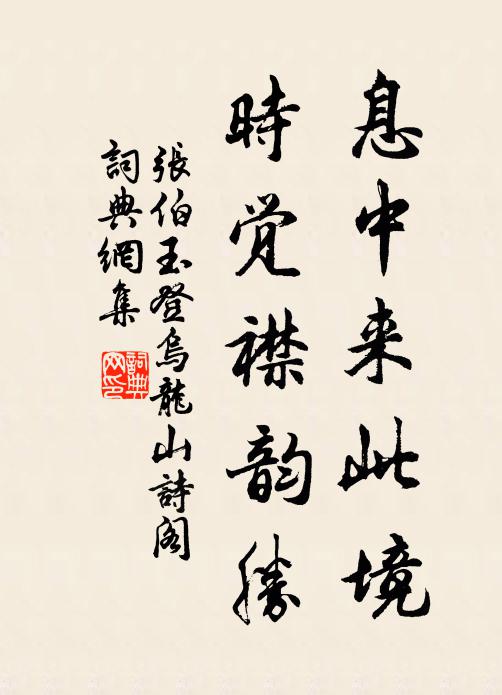 息中来此境
時觉襟韵勝
張伯玉登烏龍山詩阁
詞典網集
詞典网印